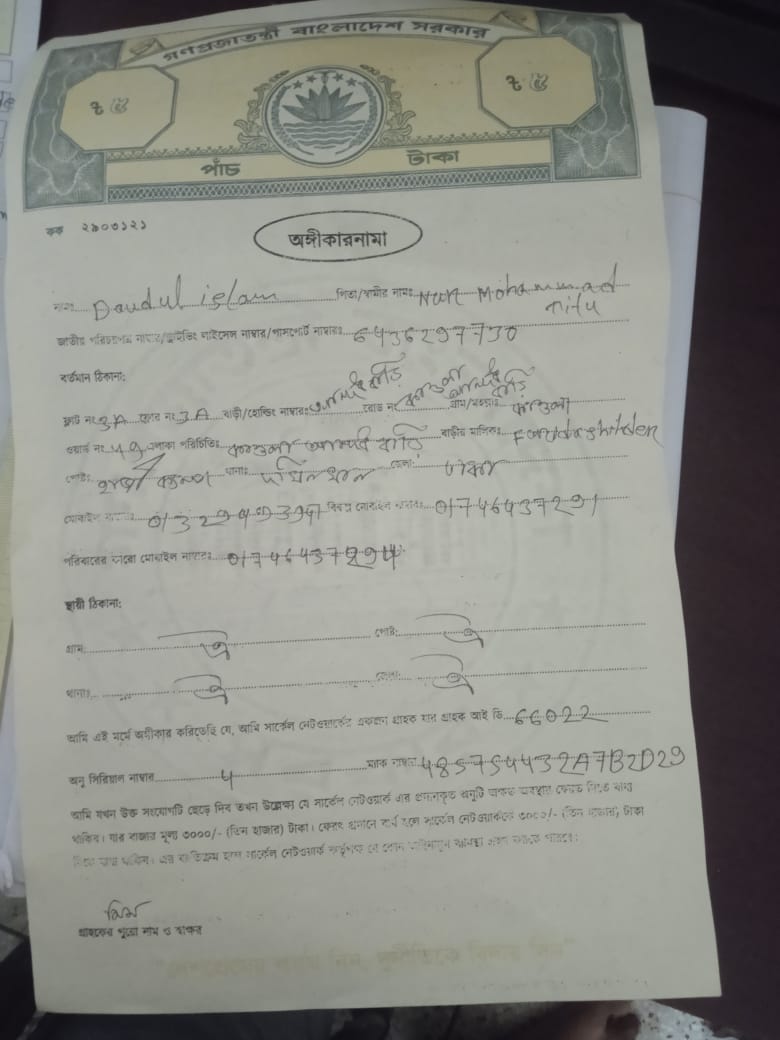 গণপ্রজাতন্ত্রী বাংলাদেশ সরকার
৳ ৫ ৳ ৫
পাঁচ টাকা
কক ২৯০৩১২১
অঙ্গীকারনামা
নামঃ Daudul islam পিতা/স্বামীর নামঃ Nur Mohammad
জাতীয় পরিচয়পত্র নাম্বার/ড্রাইভিং লাইসেন্স নাম্বার/পাসপোর্ট নাম্বারঃ 6436297730
বর্তমান ঠিকানা:
ফ্লাট নং 3A ফ্লোর নং 3A বাড়ী/হোল্ডিং নাম্বারঃ রোড নং কাওলা গ্রাম/মহল্লাঃ কাওলা
ওয়ার্ড নং 49 এলাকা পরিচিতিঃ কাওলা বাড়ি বাড়ীর মালিকঃ
পোষ্ট: থানাঃ জেলা: ঢাকা
মোবাইল নাম্বারঃ বিকল্প মোবাইল নাম্বারঃ 01746437291
পরিবারের কারো মোবাইল নাম্বারঃ
স্থায়ী ঠিকানা:
গ্রামঃ ঐ পোষ্ট: ঐ
থানাঃ ঐ জেলা: ঐ
আমি এই মর্মে অঙ্গীকার করিতেছি যে, আমি সার্কেল নেটওয়ার্কের একজন গ্রাহক যার গ্রাহক আই ডি 66022
অনু সিরিয়াল নাম্বার 4 ম্যাক নাম্বার 485754432A7B2D29
আমি যখন উক্ত সংযোগটি ছেড়ে দিব তখন উল্লেক্ষ্য যে সার্কেল নেটওয়ার্ক এর প্রদানকৃত অনুটি অক্ষত অবস্থায় ফেরত দিতে বাধ্য
থাকিব। যার বাজার মূল্য ৩০০০/- (তিন হাজার) টাকা। ফেরৎ প্রদানে ব্যর্থ হলে সার্কেল নেটওয়ার্ককে ৩০০০/- (তিন হাজার) টাকা
দিতে বাধ্য থাকিব। এর ব্যতিক্রম হলে সার্কেল নেটওয়ার্ক কর্তৃপক্ষ যে কোন আইনানুগ ব্যবস্থা গ্রহণ করতে পারবে।
গ্রাহকের পুরো নাম ও স্বাক্ষর